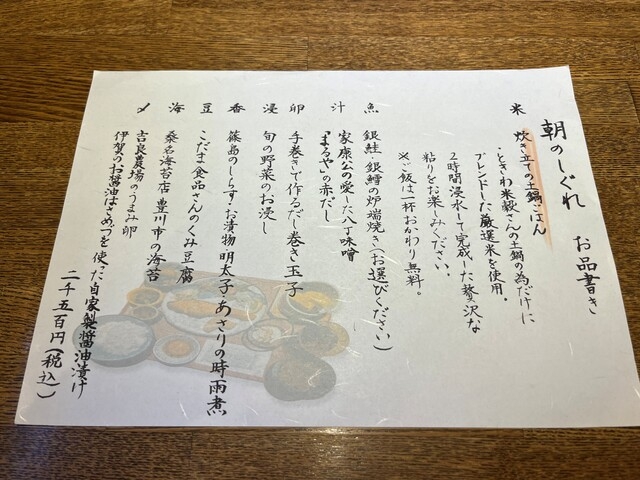 朝のしぐれ お品書き
米 炊き立ての土鍋ごはん
・ときわ米穀さんの土鍋の為だけに
ブレンドした厳選米を使用。
2時間浸水して完成した贅沢な
粘りをお楽しみください。
※ご飯は一杯おかわり無料。
魚 銀鮭・銀鱈の炉端焼き(お選びください)
汁 家康公の愛した八丁味噌
「まるや」の赤だし
卵 手巻きで作るだし巻き玉子
浸 旬の野菜のお浸し
香 篠島のしらす・お漬物・明太子・あさりの時雨煮
豆 こだま食品さんのくみ豆腐
海 桑名海苔店 豊川市の海苔
〆 吉良農場のうまみ卵
伊賀のお醤油はさめづを使った自家製醤油漬け
二千五百円(税込)